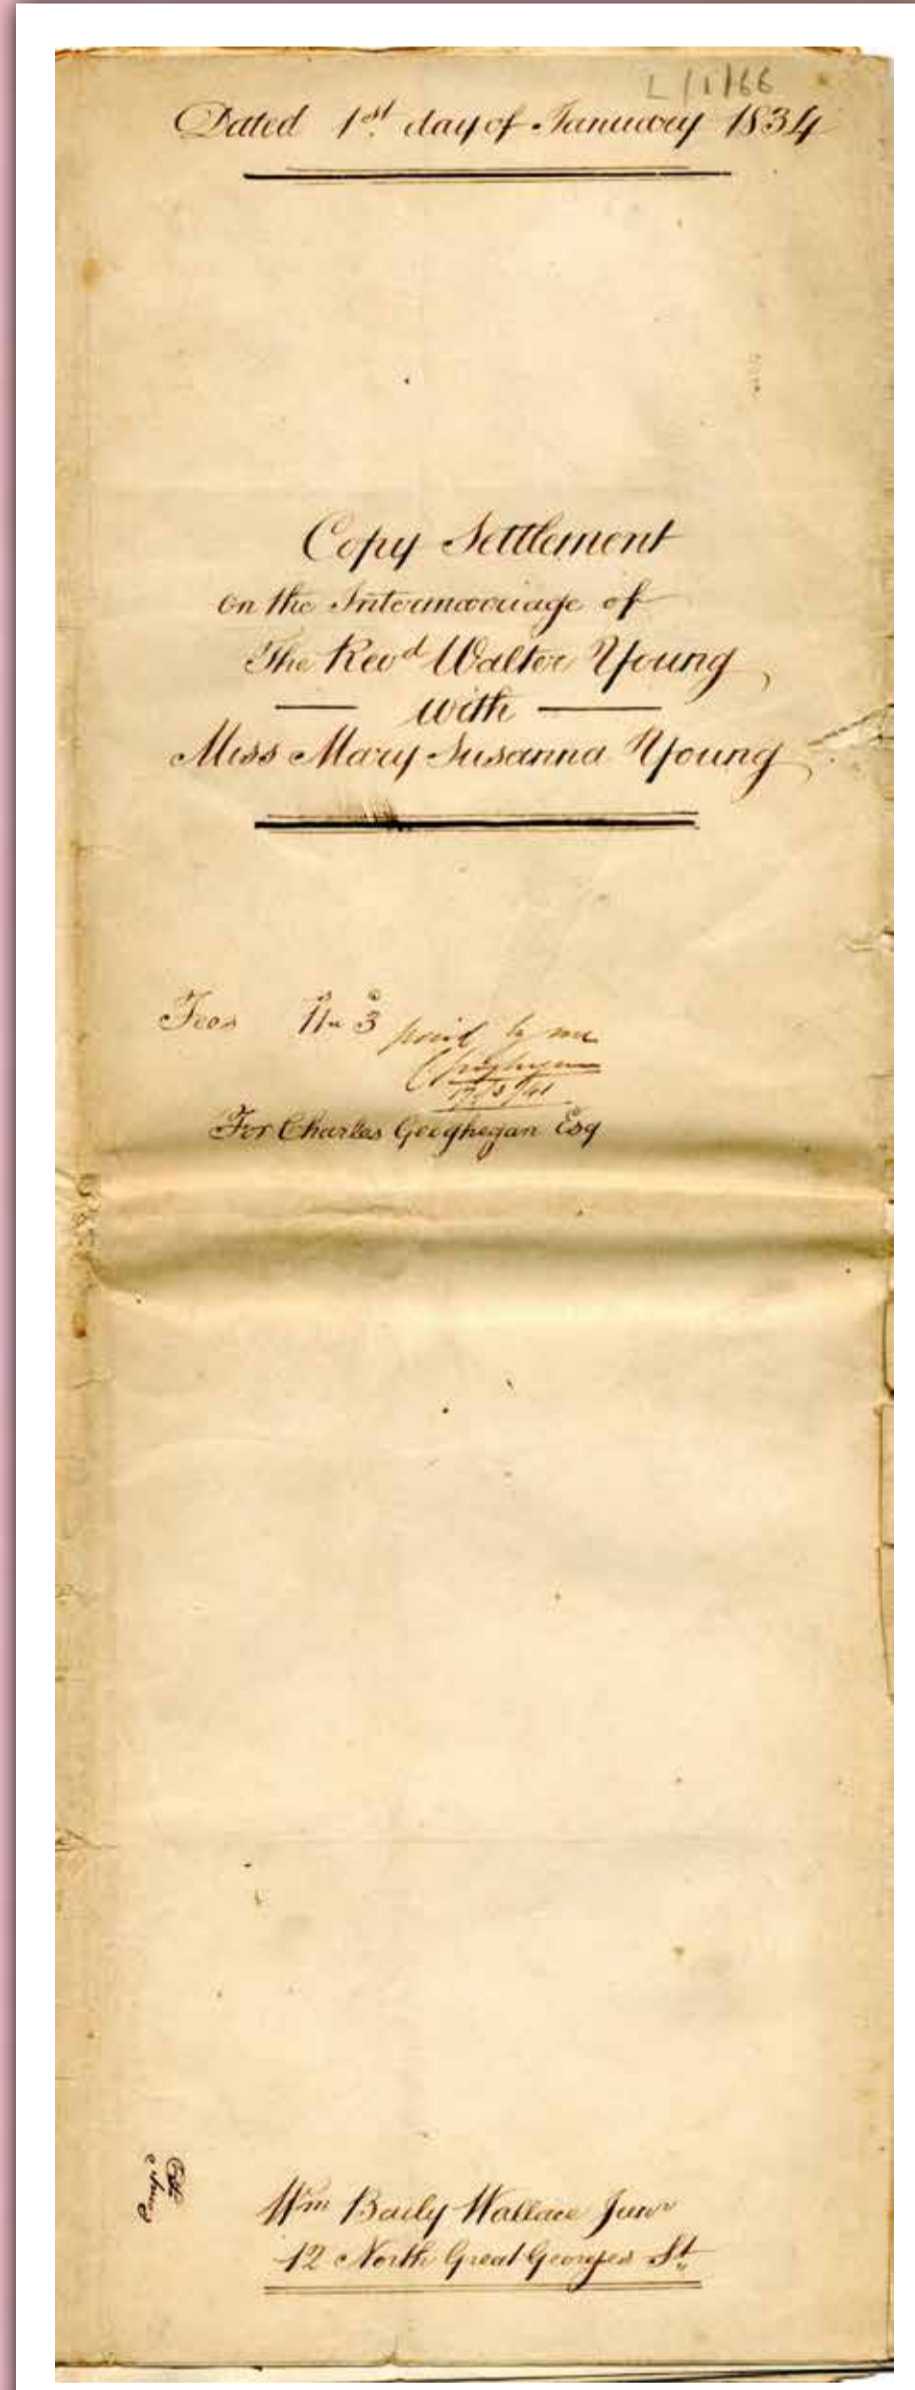 L/1/66
Dated 1st day of January 1834
Copy Settlement
on the Intermarriage of
The Revd Walter Young
with
Miss Mary Susanna Young
Fees 11s 3d paid by me
C Geoghegan
For Charles Geoghegan Esq
Wm Baily Wallace Junr
12 North Great Georges St